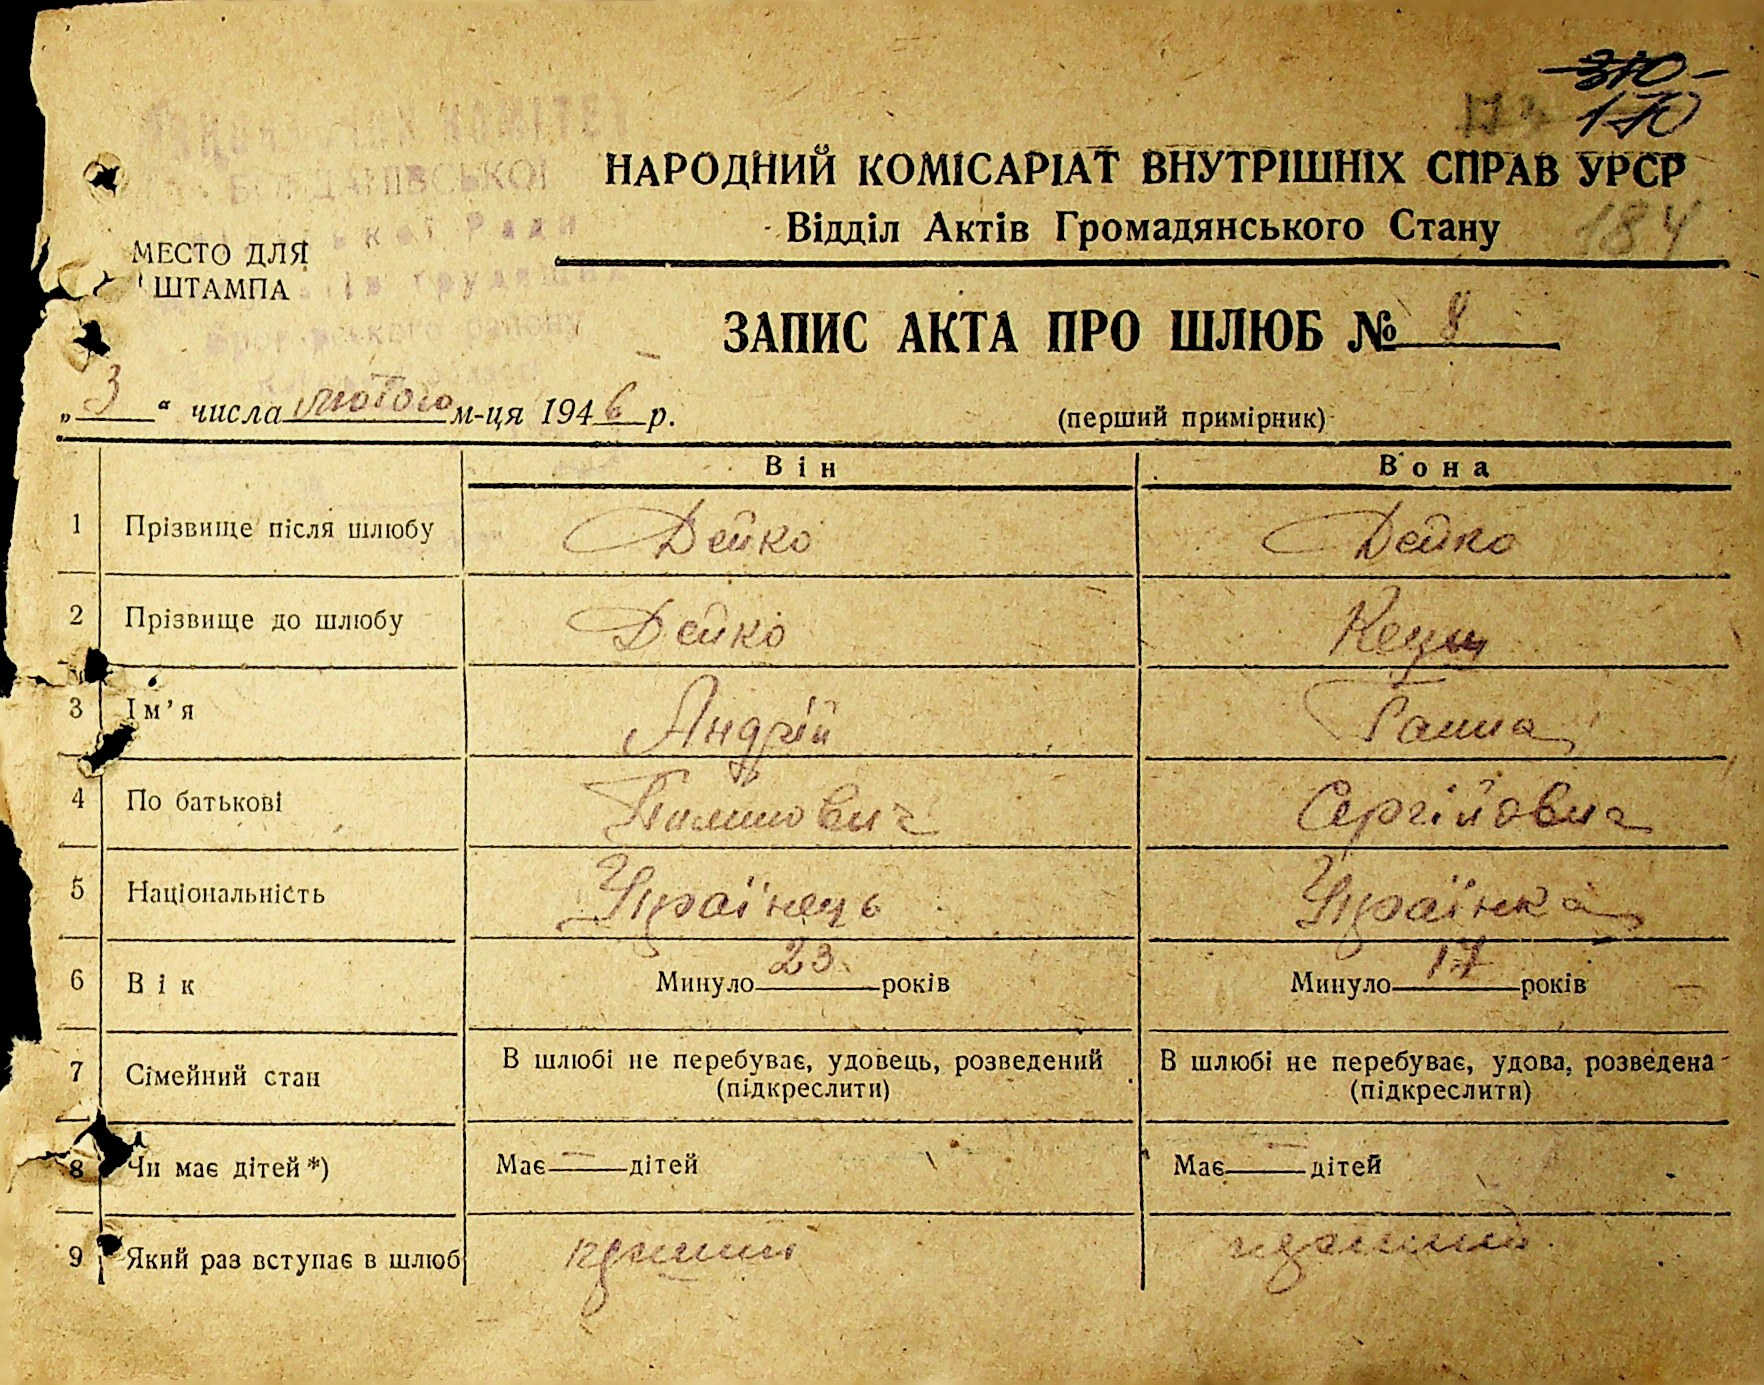 310
170
184
БОГДАНІВСЬКОЇ
Ради
трудящих
району
НАРОДНИЙ КОМІСАРІАТ ВНУТРІШНІХ СПРАВ УРСР
Відділ Актів Громадянського Стану
МЕСТО ДЛЯ
ШТАМПА
ЗАПИС АКТА ПРО ШЛЮБ № 8
„ 3 “ числа лютого м-ця 1946 р.
(перший примірник)
Він Вона
1 Прізвище після шлюбу Дейко Дейко
2 Прізвище до шлюбу Дейко
3 Ім’я Андрій Ганна
4 По батькові Пилипович Сергійовна
5 Національність Українець Українка
6 Вік Минуло 23 років Минуло 17 років
7 Сімейний стан В шлюбі не перебуває, удовець, розведений В шлюбі не перебуває, удова, розведена
(підкреслити) (підкреслити)
8 Чи має дітей*) Має — дітей Має — дітей
9 Який раз вступає в шлюб перший перший